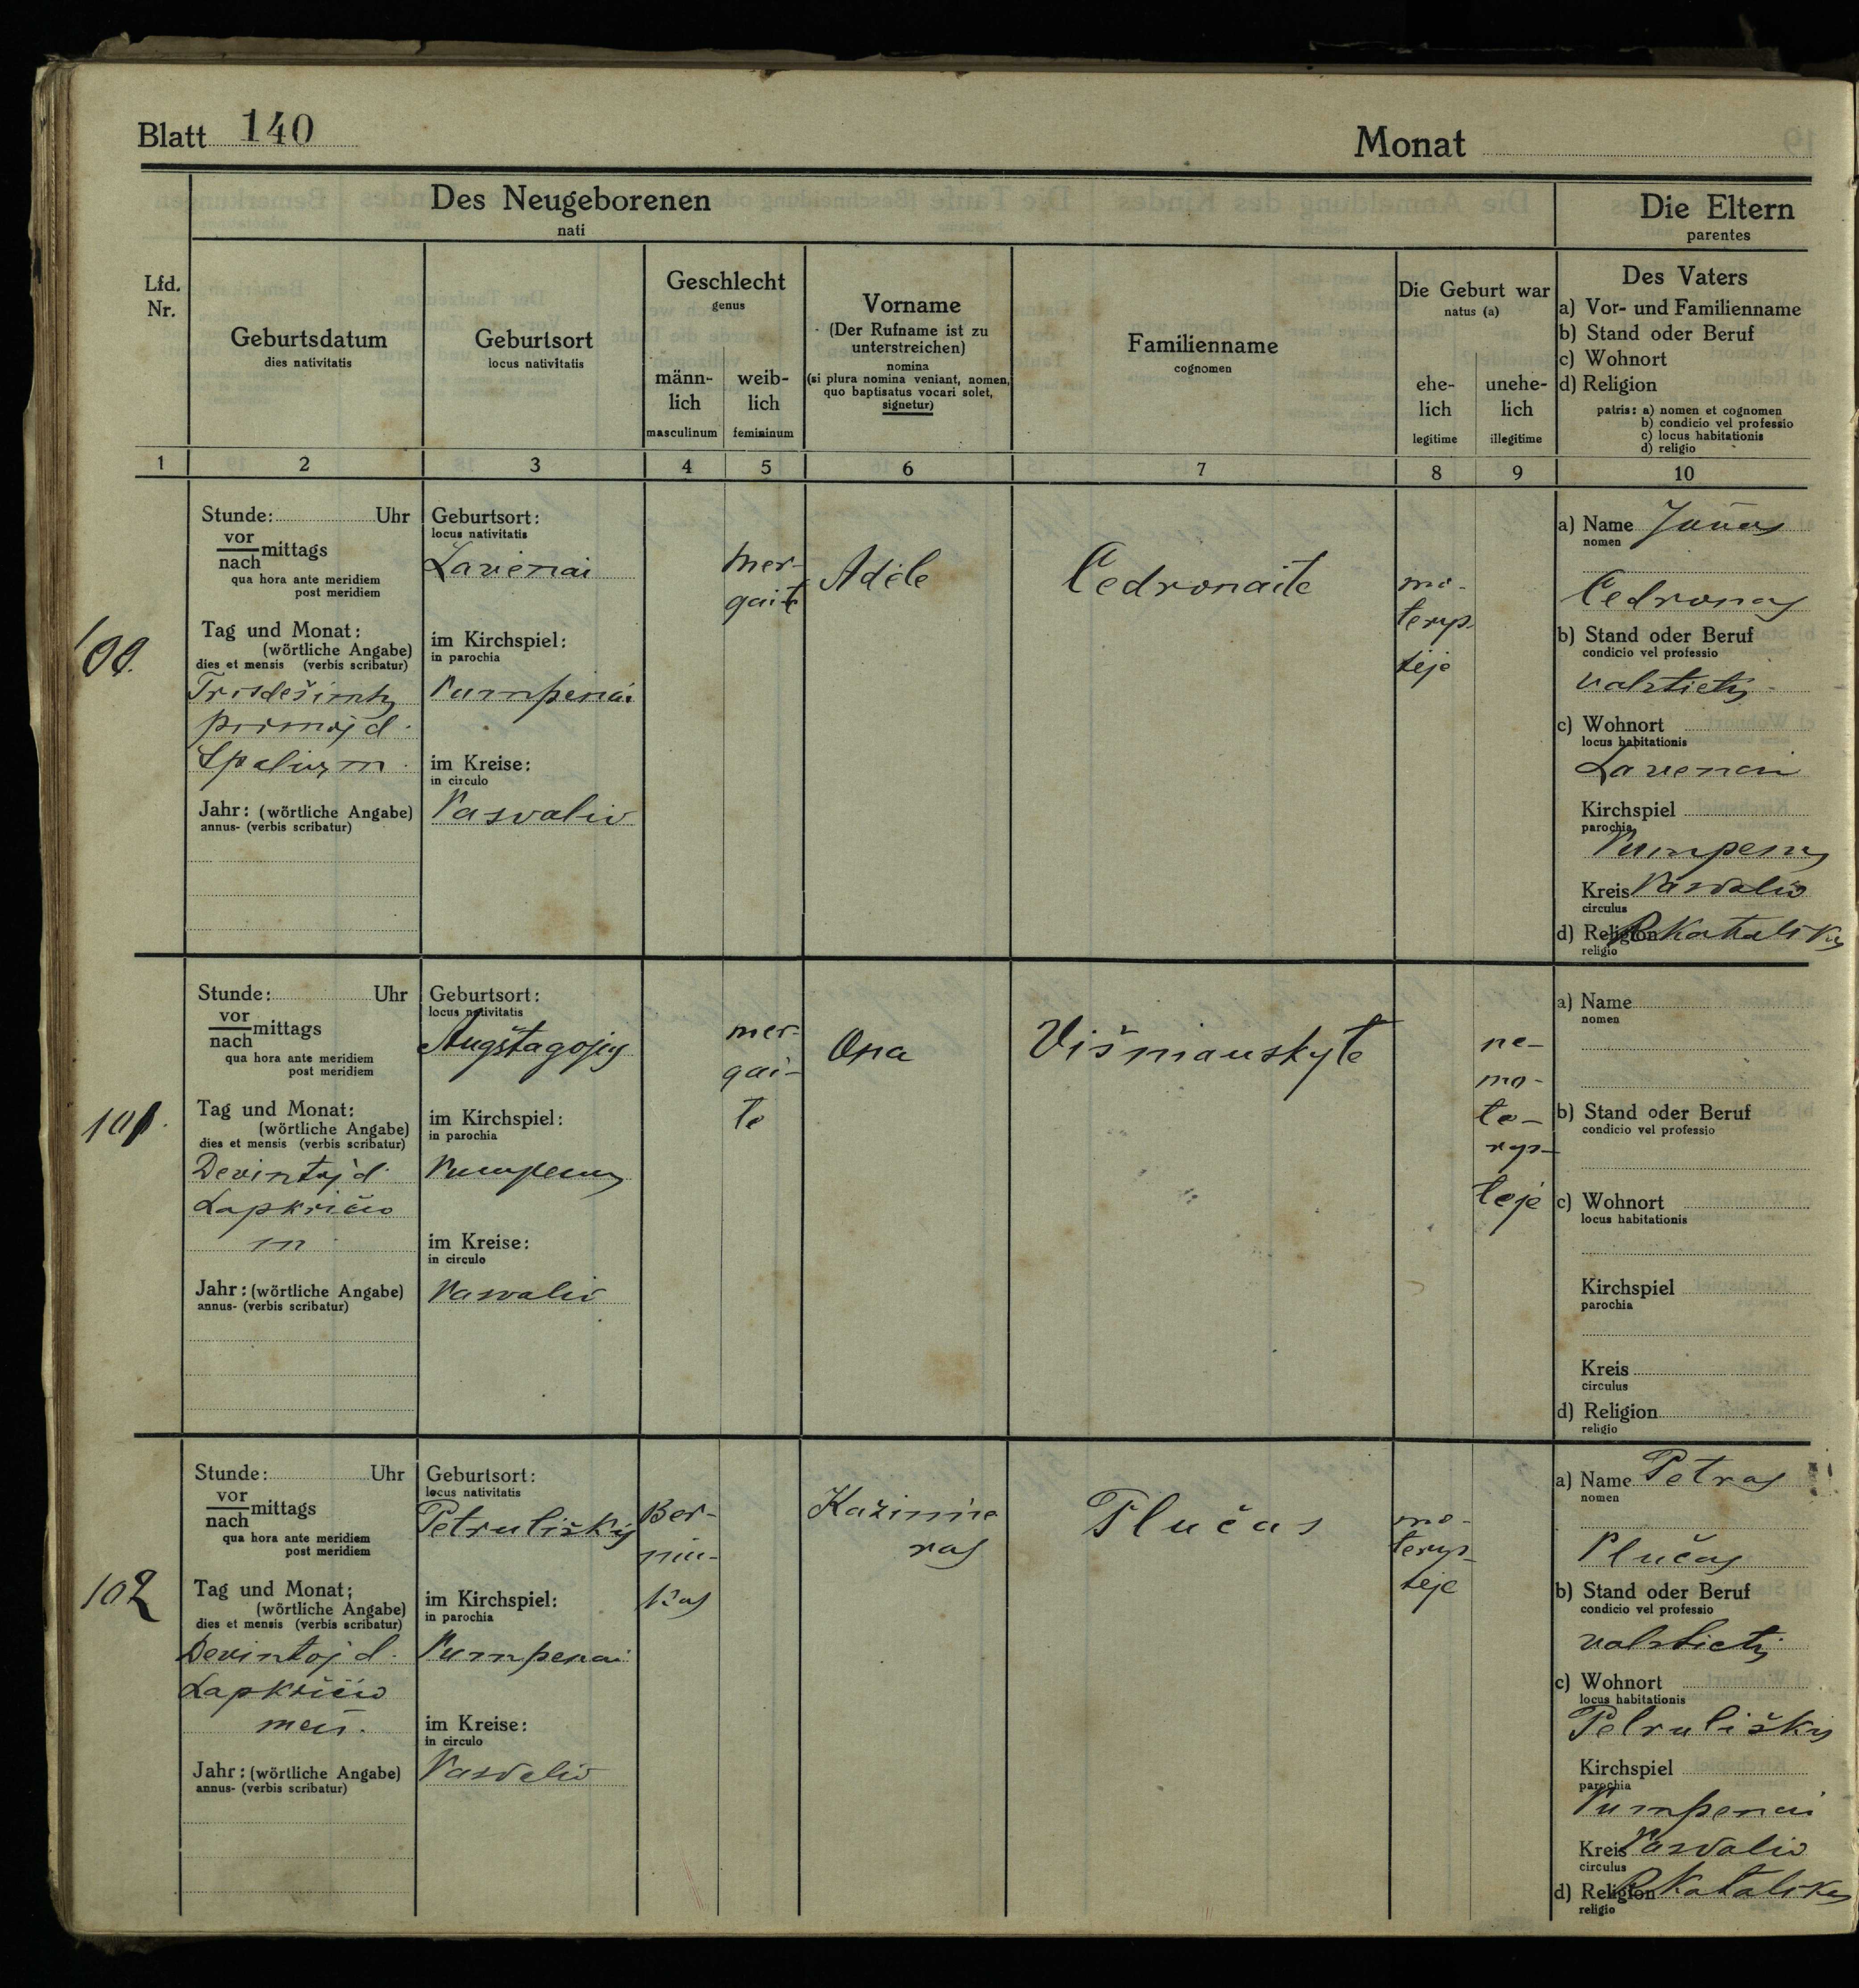 Blatt 140
Monat
Des Neugeborenen
nati
Die Eltern
parentes
Lfd.
Nr.
Geburtsdatum
dies nativitatis
Geburtsort
locus nativitatis
Geschlecht
genus
männ-
lich
masculinum
weib-
lich
femininum
Vorname
(Der Rufname ist zu
unterstreichen)
nomina
(si plura nomina veniant, nomen,
quo baptisatus vocari solet,
signetur)
Familienname
cognomen
Die Geburt war
natus (a)
ehe-
lich
legitime
unehe-
lich
illegitime
Des Vaters
a) Vor- und Familienname
b) Stand oder Beruf
c) Wohnort
d) Religion
patris: a) nomen et cognomen
b) condicio vel professio
c) locus habitationis
d) religio
1 2 3 4 5 6 7 8 9 10
100.
Stunde: Uhr
vor
nach mittags
qua hora ante meridiem
post meridiem
Tag und Monat:
(wörtliche Angabe)
dies et mensis (verbis scribatur)
Trisdešimtų
pirmoj d.
Spalių m.
Jahr: (wörtliche Angabe)
annus- (verbis scribatur)
Geburtsort:
locus nativitatis
Lavėnai
im Kirchspiel:
in parochia
Pumpėnai
im Kreise:
in circulo
Pasvalio
mer-
gaitė
Adėlė
Čedronaitė
mo-
terys-
tėje
a) Name Jonas
nomen
Čedronas
b) Stand oder Beruf
condicio vel professio
valstietis
c) Wohnort
locus habitationis
Lavėnai
Kirchspiel
parochia
Pumpėnų
Kreis Pasvalio
circulus
d) Religion R. Katalikų
religio
101.
Stunde: Uhr
vor
nach mittags
qua hora ante meridiem
post meridiem
Tag und Monat:
(wörtliche Angabe)
dies et mensis (verbis scribatur)
Devintoj d.
Lapkričio
m
Jahr: (wörtliche Angabe)
annus- (verbis scribatur)
Geburtsort:
locus nativitatis
Augštagojų
im Kirchspiel:
in parochia
Pumpėnų
im Kreise:
in circulo
Pasvalio
mer-
gai-
tė
Ona
Višniauskytė
ne-
mo-
te-
rys-
tėje
a) Name
nomen
b) Stand oder Beruf
condicio vel professio
c) Wohnort
locus habitationis
Kirchspiel
parochia
Kreis
circulus
d) Religion
religio
102
Stunde: Uhr
vor
nach mittags
qua hora ante meridiem
post meridiem
Tag und Monat:
(wörtliche Angabe)
dies et mensis (verbis scribatur)
Devintoj d.
Lapkričio
mėn.
Jahr: (wörtliche Angabe)
annus- (verbis scribatur)
Geburtsort:
locus nativitatis
Petruliškių
im Kirchspiel:
in parochia
Pumpėnai
im Kreise:
in circulo
Pasvalio
Ber-
niu-
kas
Kazimie
ras
Plučas
mo-
terys-
tėje
a) Name Petras
nomen
Plučas
b) Stand oder Beruf
condicio vel professio
valstietis
c) Wohnort
locus habitationis
Petruliškių
Kirchspiel
parochia
Pumpėnai
Kreis Pasvalio
circulus
d) Religion R. Katalikas
religio